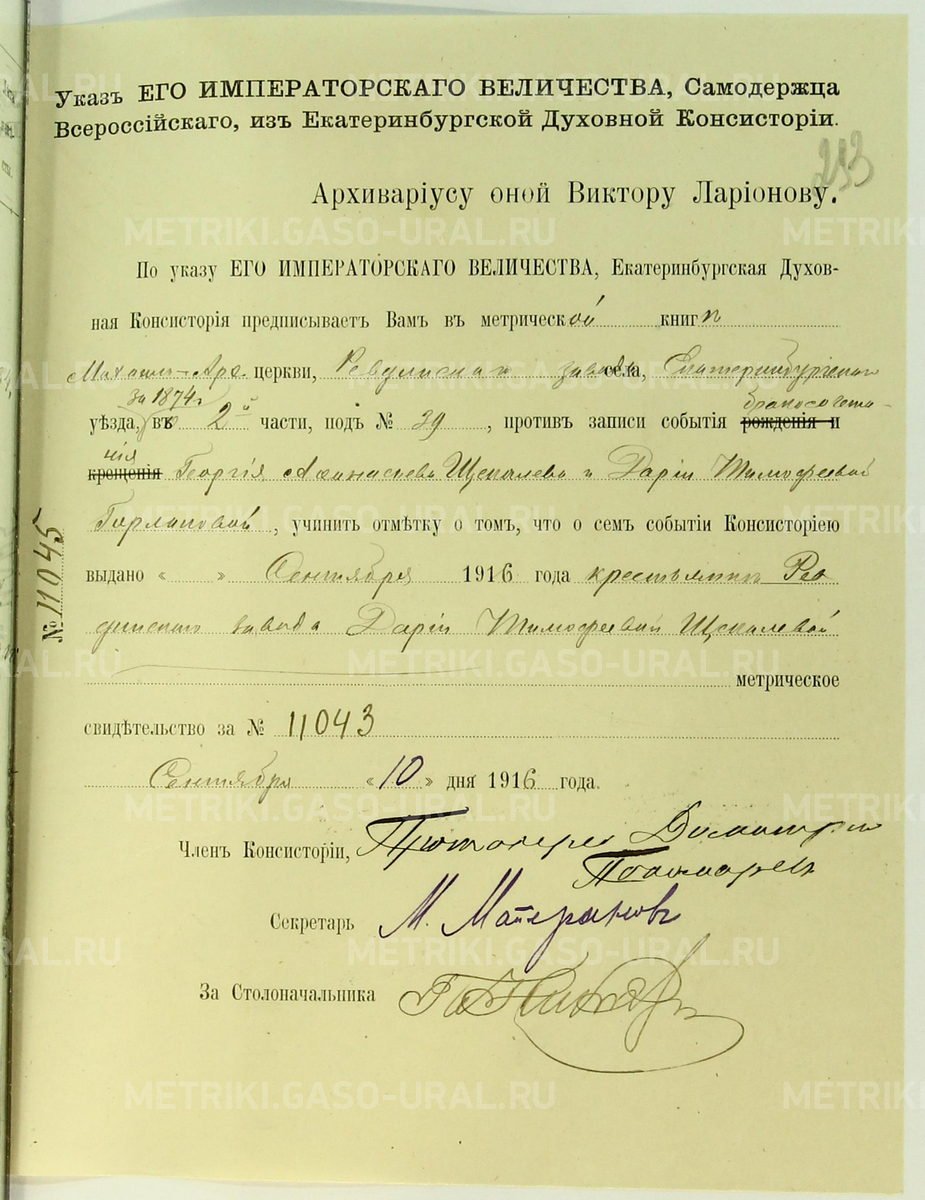 Указъ ЕГО ИМПЕРАТОРСКАГО ВЕЛИЧЕСТВА, Самодержца
Всероссійскаго, изъ Екатеринбургской Духовной Консисторіи.
Архиваріусу оной Виктору Ларіонову.
По указу ЕГО ИМПЕРАТОРСКАГО ВЕЛИЧЕСТВА, Екатеринбургская Духов-
ная Консисторія предписываетъ Вамъ въ метрической книгѣ
Михаило-Арх. церкви, Ревдинскаго завода села, Екатеринбургскаго
за 1874 г бракосочета-
уѣзда, въ 2й части, подъ № 39, противъ записи событія рожденія и
нія
крещенія Георгія Аѳанасьева Щекалева и Даріи Тимоѳеевой
, учинить отмѣтку о томъ, что о семъ событіи Консисторіею
выдано « » Сентября 1916 года крестьянкѣ Рев
динскаго завода Даріи Тимоѳеевой Щекалевой
метрическое
свидѣтельство за № 11043
Сентября «10» дня 1916 года.
Членъ Консисторіи, Протоіерей Димитрій
Пономаревъ
Секретарь М.
За Столоначальника
№ 11045
METRIKI.GASO-URAL.RU